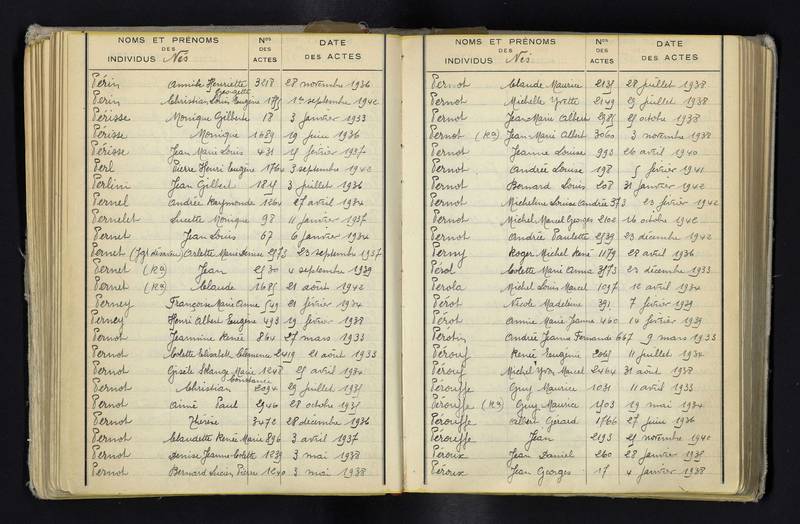 NOMS ET PRÉNOMS
DES
INDIVIDUS Nés
Nos
DES
ACTES
DATE
DES ACTES
Périn Annick Henriette 3218 28 novembre 1936
Georgette
Périn Christian Louis Eugène 1er septembre 1942
Périsse Monique Gilberte 18 3 janvier 1933
Périsse Monique 1689 19 juin 1936
Périsse Jean Marie Louis 431 février 1937
Perl Pierre Henri Eugène 1764 3 septembre 1942
Perlini Jean Gilbert 3 juillet 1936
Pernel Andrée Raymonde 1264 27 avril 1934
Pernelet Lucette Monique 98 11 janvier 1937
Pernet Jean Louis 67 6 janvier 1934
Pernet Arlette Marie Denise 2973 23 septembre 1937
Pernet (Ra) Jean 2530 4 septembre 1939
Pernet (Ra) Claude 1685 21 août 1942
Perney Françoise Marie Anne 549 21 février 1934
Perney Henri Albert Eugène 493 19 février 1938
Pernot Jeannine Renée 864 27 mars 1933
Pernot Colette Elisabeth Clémence 2419 21 août 1933
Pernot Gisèle Solange Marie 1248 25 avril 1934
Constance
Pernot Christian 2094 29 juillet 1935
Pernot Aimé Paul 2946 28 octobre 1935
Pernot Thérèse 3472 28 décembre 1936
Pernot Claudette Renée Marie 896 3 avril 1937
Pernot Denise Jeanne Colette 1239 3 mai 1938
Pernot Bernard Lucien Pierre 1240 3 mai 1938
NOMS ET PRÉNOMS
DES
INDIVIDUS Nés
Nos
DES
ACTES
DATE
DES ACTES
Pernot Claude Maurice 2135 28 juillet 1938
Pernot Michelle Yvette 2149 29 juillet 1938
Pernot Jean Marie Albert 2985 25 octobre 1938
Pernot (Ra) Jean Marie Albert 3060 3 novembre 1938
Pernot Jeanne Louise 993 26 avril 1940
Pernot Andrée Louise 198 5 février 1941
Pernot Bernard Louis 208 31 janvier 1942
Pernot Micheline Louise Andrée 373 23 février 1942
Pernot Michel Marcel Georges 2100 16 octobre 1942
Pernot Andrée Paulette 2539 23 décembre 1942
Perny Roger Michel René 1179 28 avril 1936
Pérol Colette Marie Anne 3773 22 décembre 1933
Perola Michel Louis Marcel 1097 12 avril 1934
Pérot Nicole Madeleine 391 7 février 1939
Pérot Annie Marie Jeanne 460 14 février 1939
Pérotin André Jeanne Fernande 667 9 mars 1933
Pérouf Renée Eugénie 2065 11 juillet 1934
Pérouf Michel Yvon Marcel 2464 31 août 1938
Pérouffe Guy Maurice 1031 11 avril 1933
Pérouffe (Ra) Guy Maurice 1503 19 mai 1934
Pérouffe Albert Gérard 1766 27 juin 1936
Pérouffe Jean 2193 25 novembre 1940
Péroux Jean Daniel 260 28 janvier 1935
Péroux Jean Georges 17 4 janvier 1938